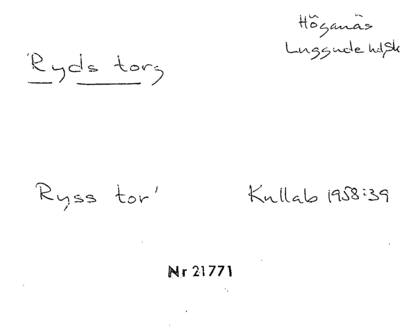 Höganäs
Luggude hd, Sk
Ryds torg
Ryss tor'
Kullab 1958:39
Nr 21771